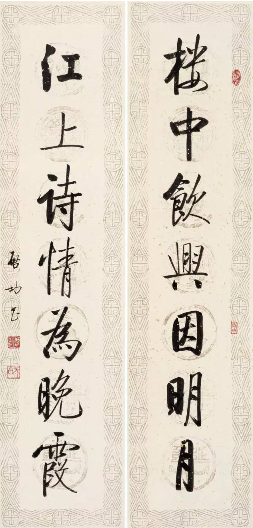 楼中飲興因明月
江上诗情為晚霞
启功书